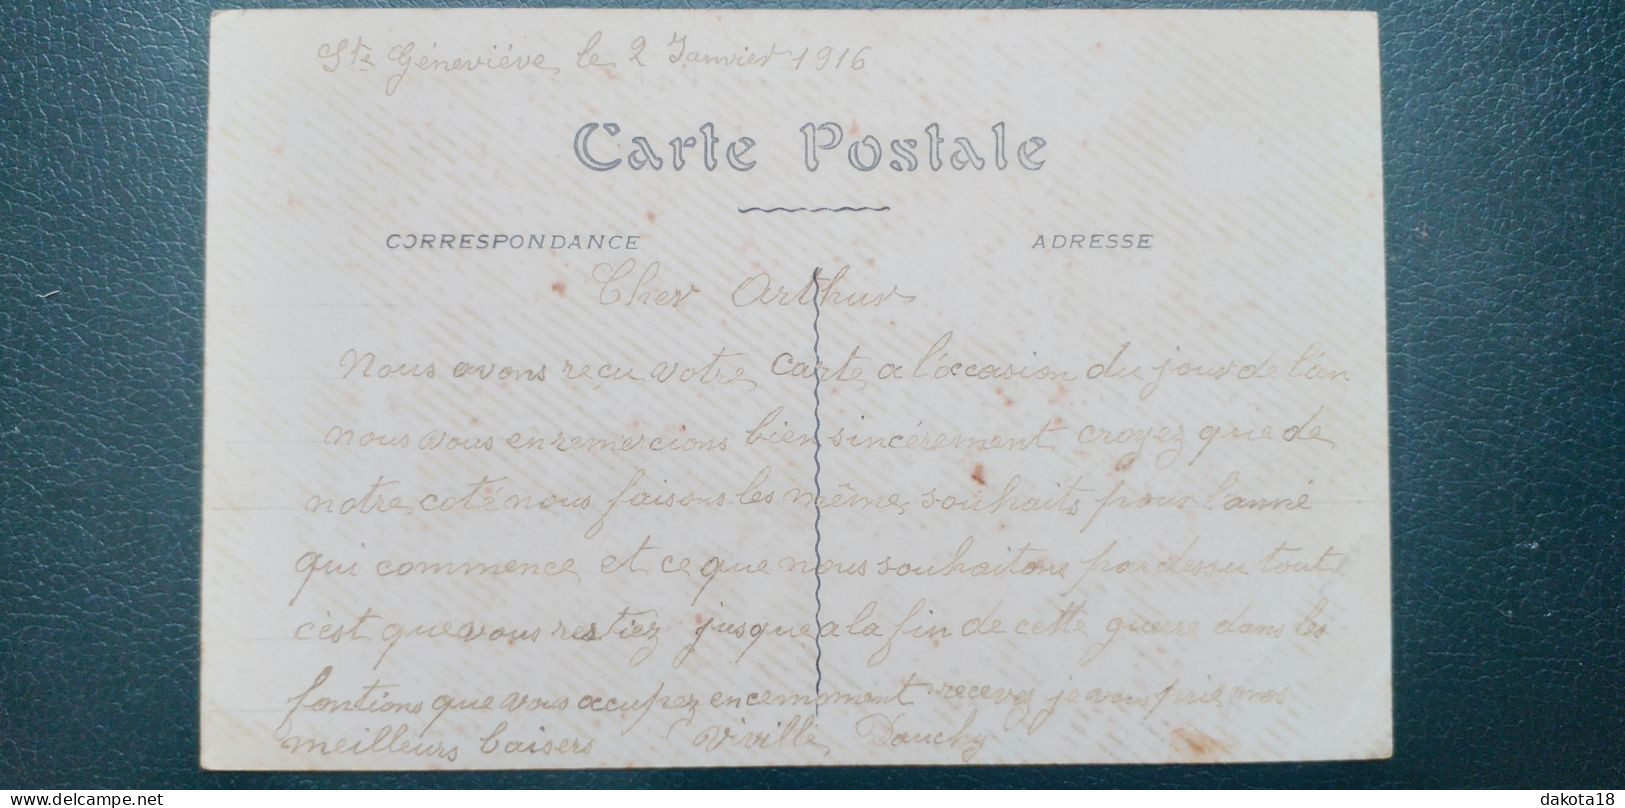 Ste Géneviéve le 2 Janvier 1916
Carte Postale
CORRESPONDANCE
ADRESSE
Cher Arthur
nous avons reçu votre carte a l'occasion du jour de l'an
nous vous en remercions bien sincérement croyez que de
notre coté nous faisons les même souhaits pour l'anné
qui commence et ce que nous souhaitons par dessu tout
c'est que vous restiez jusque a la fin de cette guerre dans les
fontions que vous occupez en ce moment recevez je vous prie nos
meilleurs baisers Viville Dauchy
delcampe.net
dakota18